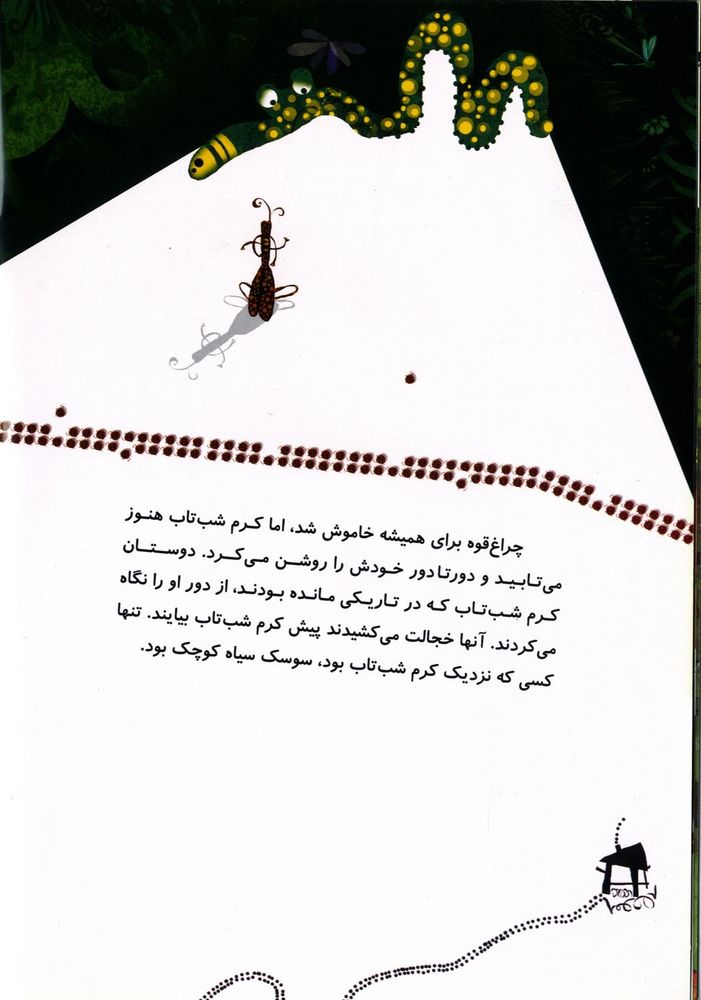 چراغ‌قوه برای همیشه خاموش شد، اما کـرم شب‌تاب هنـوز
می‌تـابیـد و دورتـادور خـودش را روشـن می‌کـرد. دوسـتـان
کـرم شب‌تـاب کـه در تـاریکـی مانـده بـودنـد، از دور او را نگاه
می‌کردند. آنها خجالت می‌کشیدند پیش کرم شب‌تاب بیایند. تنها
کسی که نزدیک کرم شب‌تاب بود، سوسک سیاه کوچک بود.